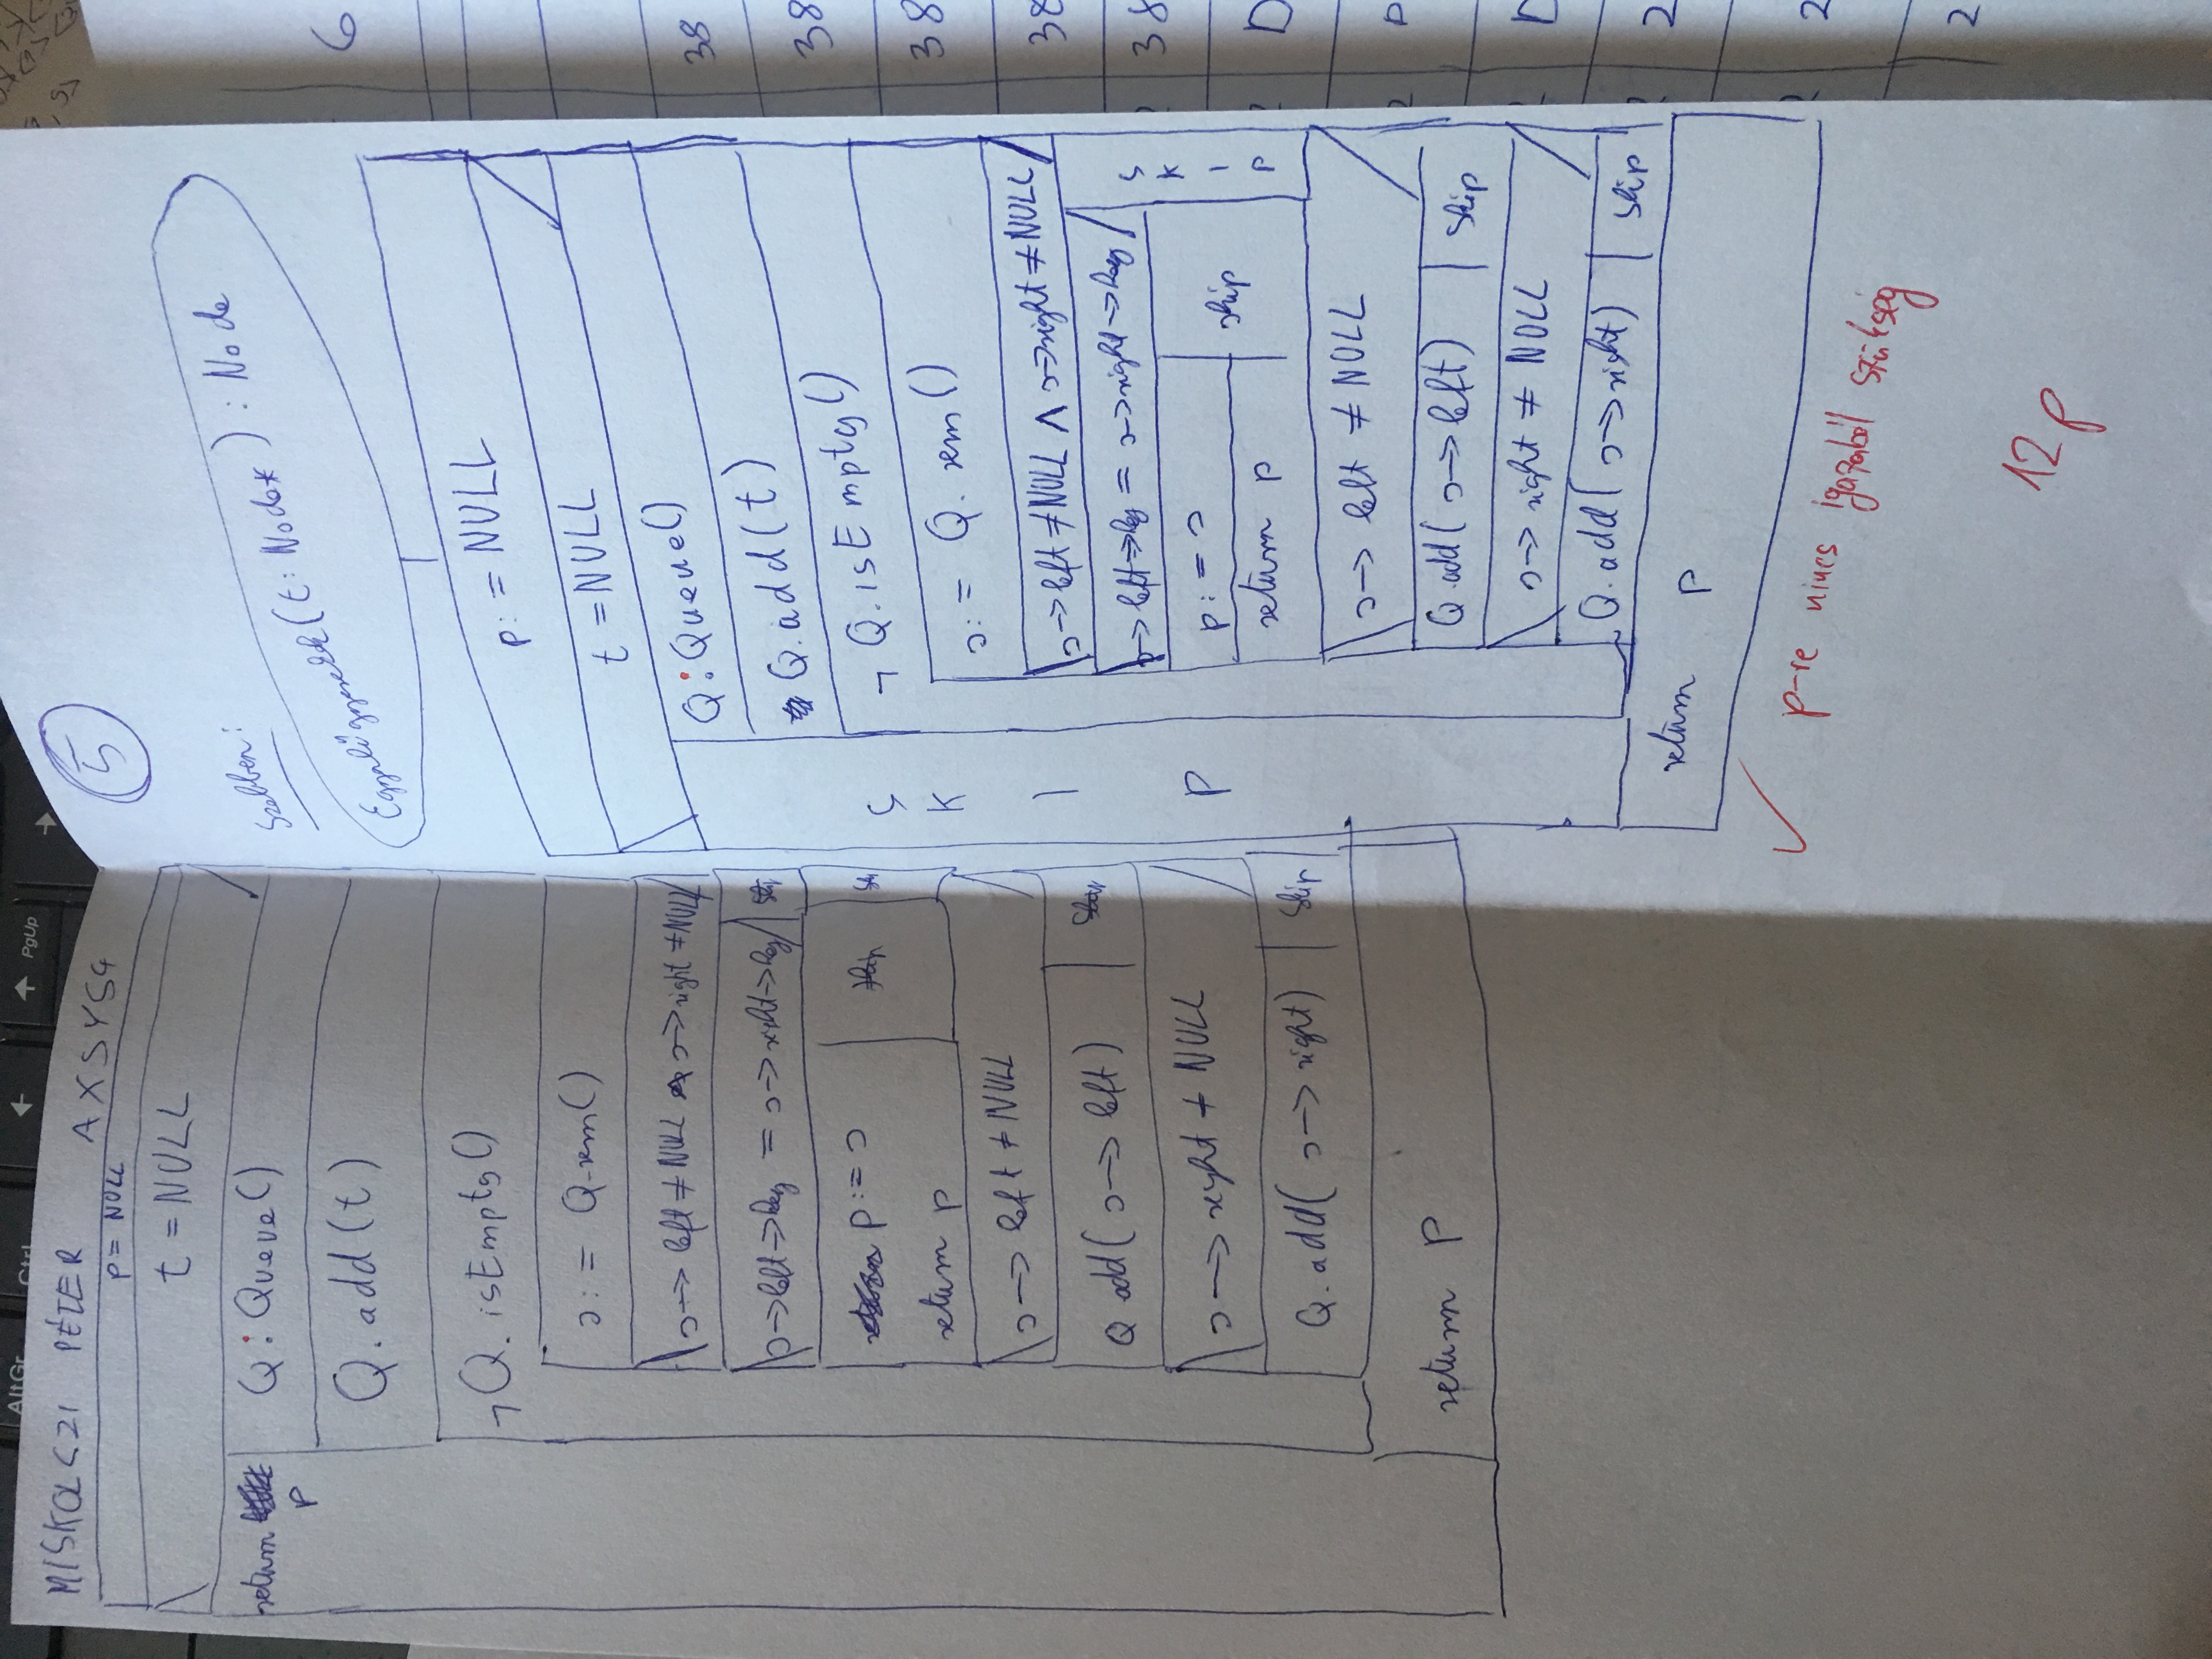 AltGr
Ctrl
PgUp
MISKOLCZI PÉTER AXSYS4
p = NULL
t = NULL
return p
Q : Queue()
Q.add(t)
¬Q.isEmpty()
s := Q.rem()
s→left ≠ NULL ∧ s→right ≠ NULL
s→left→key = s→right→key
p := s
skip
return p
s→left ≠ NULL
Q.add(s→left)
s→right ≠ NULL
Q.add(s→right) skip
return p
5
Szebben:
(t: Node*) : Node
p := NULL
t = NULL
SKIP
Q : Queue()
Q.add(t)
¬Q.isEmpty()
s := Q.rem()
s→left ≠ NULL ∧ s→right ≠ NULL
s→left→key = s→right→key
SKIP
p := s
skip
return p
s→left ≠ NULL
Q.add(s→left) skip
s→right ≠ NULL
Q.add(s→right) skip
return p
✓ p-re nincs igazából szükség
12p
6
38
38
38
38
38
D
D
D
2
2
2